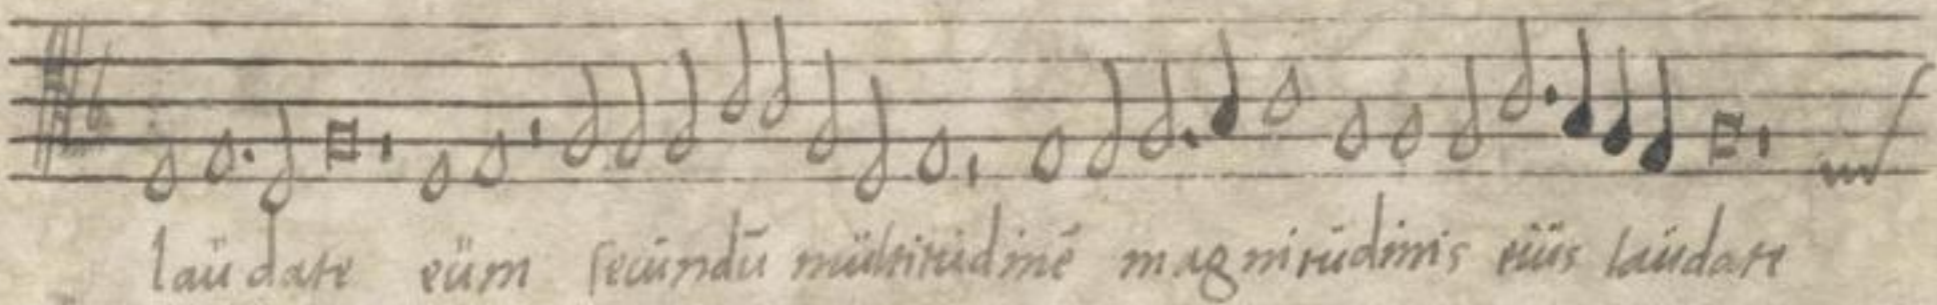 laüdate eüm secündū mültitüdinē magnitüdinis eiüs laüdate